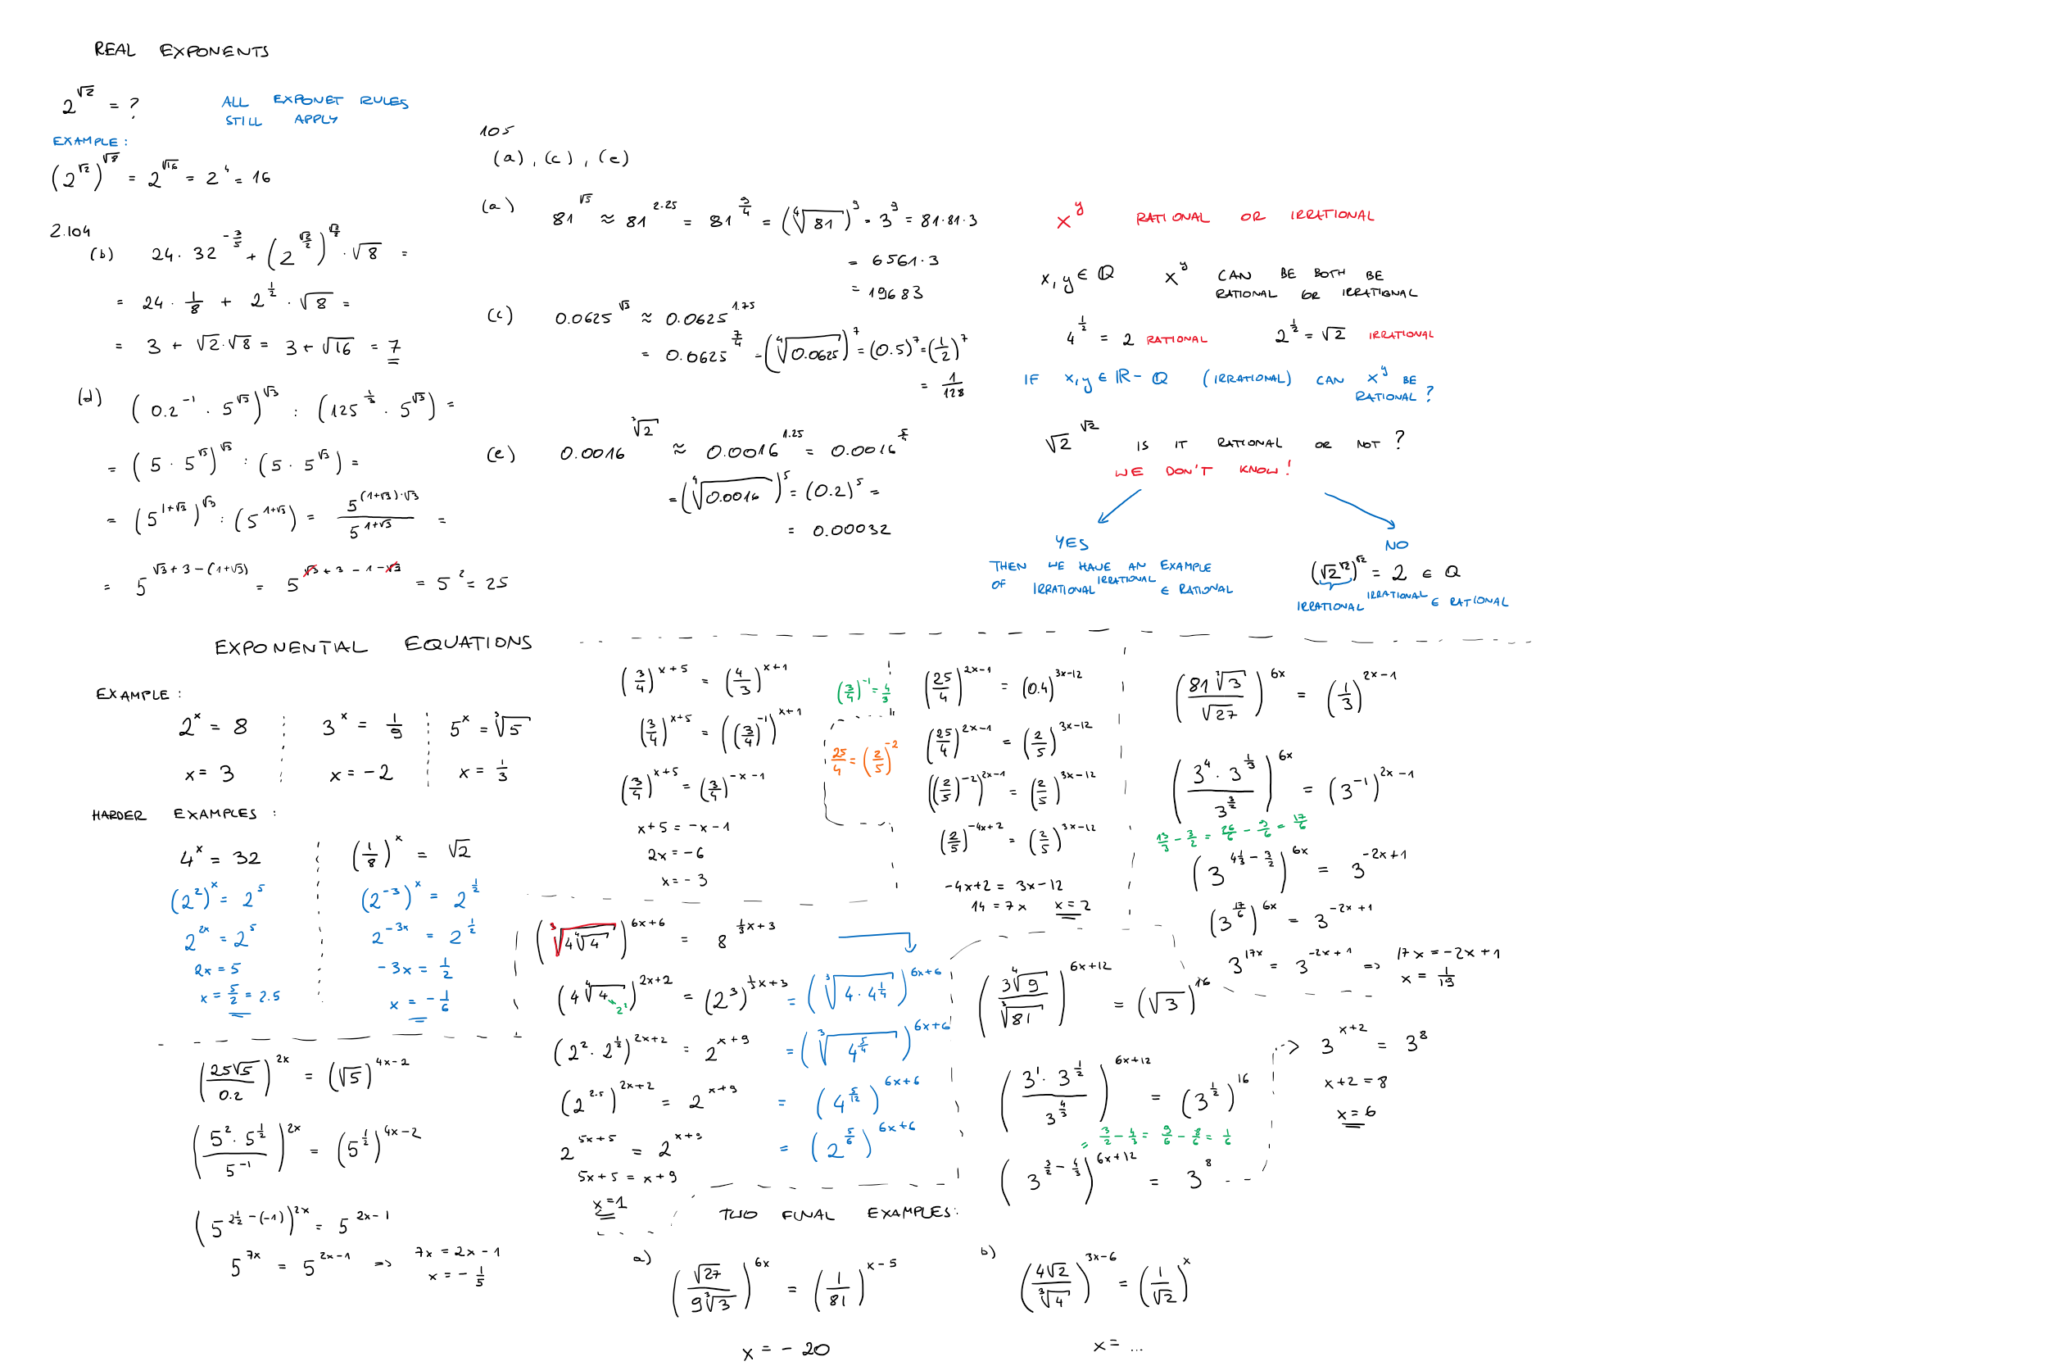 REAL EXPONENTS
2^√2 = ?
ALL EXPONET RULES
STILL APPLY
EXAMPLE:
(2^√2)^√8 = 2^√16 = 2^4 = 16
2.104
(b) 24 · 32^(-3/5) + (2^(√2/2))^(√2/2) · √8 =
= 24 · 1/8 + 2^(1/2) · √8 =
= 3 + √2·√8 = 3 + √16 = 7
(d) (0.2^-1 · 5^√3)^√3 : (125^(1/3) · 5^√3) =
= (5 · 5^√3)^√3 : (5 · 5^√3) =
= (5^(1+√3))^√3 : (5^(1+√3)) = 5^((1+√3)·√3) / 5^(1+√3) =
= 5^(√3+3-(1+√3)) = 5^(√3+3-1-√3) = 5^2 = 25
105
(a), (c), (e)
(a) 81^√5 ≈ 81^2.25 = 81^(9/4) = (⁴√81)^9 = 3^9 = 81·81·3
= 6561·3
= 19683
(c) 0.0625^√3 ≈ 0.0625^1.75
= 0.0625^(7/4) = (⁴√0.0625)^7 = (0.5)^7 = (1/2)^7
= 1/128
(e) 0.0016^(³√2) ≈ 0.0016^1.25 = 0.0016^(5/4)
= (⁴√0.0016)^5 = (0.2)^5 =
= 0.00032
x^y RATIONAL OR IRRATIONAL
x, y ∈ Q x^y CAN BE BOTH BE
RATIONAL OR IRRATIONAL
4^(1/2) = 2 RATIONAL 2^(1/2) = √2 IRRATIONAL
IF x, y ∈ R - Q (IRRATIONAL) CAN x^y BE
RATIONAL?
√2^√2 IS IT RATIONAL OR NOT?
WE DON'T KNOW!
YES
THEN WE HAVE AN EXAMPLE
OF IRRATIONAL^IRRATIONAL ∈ RATIONAL
NO
(√2^√2)^√2 = 2 ∈ Q
IRRATIONAL^IRRATIONAL ∈ RATIONAL
EXPONENTIAL EQUATIONS
EXAMPLE:
2^x = 8
x = 3
3^x = 1/9
x = -2
5^x = ³√5
x = 1/3
HARDER EXAMPLES:
4^x = 32
(2^2)^x = 2^5
2^2x = 2^5
2x = 5
x = 5/2 = 2.5
(1/8)^x = √2
(2^-3)^x = 2^(1/2)
2^-3x = 2^(1/2)
-3x = 1/2
x = -1/6
(25√5 / 0.2)^2x = (√5)^(4x-2)
(5^2 · 5^(1/2) / 5^-1)^2x = (5^(1/2))^(4x-2)
(5^(2 1/2 - (-1)))^2x = 5^(2x-1)
5^7x = 5^(2x-1) => 7x = 2x - 1
x = -1/5
(3/4)^(x+5) = (4/3)^(x+1)
(3/4)^-1 = 4/3
(3/4)^(x+5) = ((3/4)^-1)^(x+1)
(3/4)^(x+5) = (3/4)^(-x-1)
x+5 = -x-1
2x = -6
x = -3
(25/4)^(2x-1) = (0.4)^(3x-12)
25/4 = (2/5)^-2
(25/4)^(2x-1) = (2/5)^(3x-12)
((2/5)^-2)^(2x-1) = (2/5)^(3x-12)
(2/5)^(-4x+2) = (2/5)^(3x-12)
-4x+2 = 3x-12
14 = 7x x = 2
(81 ³√3 / √27)^6x = (1/3)^(2x-1)
(3^4 · 3^(1/3) / 3^(3/2))^6x = (3^-1)^(2x-1)
13/3 - 3/2 = 26/6 - 9/6 = 17/6
(3^(4 1/3 - 3/2))^6x = 3^(-2x+1)
(3^(17/6))^6x = 3^(-2x+1)
3^17x = 3^(-2x+1) => 17x = -2x+1
x = 1/19
(³√(4 ⁴√4))^(6x+6) = 8^(1/3x+3)
(4 ⁴√4)^(2x+2) = (2^3)^(1/3x+3)
2^2
(2^2 · 2^(1/2))^(2x+2) = 2^(x+9)
(2^2.5)^(2x+2) = 2^(x+9)
2^(5x+5) = 2^(x+9)
5x+5 = x+9
x = 1
= (³√(4 · 4^(1/4)))^(6x+6)
= (³√(4^(5/4)))^(6x+6)
= (4^(5/12))^(6x+6)
= (2^(5/6))^(6x+6)
(3 ⁴√9 / ³√81)^(6x+12) = (√3)^16
(3^1 · 3^(1/2) / 3^(4/3))^(6x+12) = (3^(1/2))^16
= 3/2 - 4/3 = 9/6 - 8/6 = 1/6
(3^(3/2 - 4/3))^(6x+12) = 3^8
3^(x+2) = 3^8
x+2 = 8
x = 6
TWO FINAL EXAMPLES:
a) (√27 / 9 ³√3)^6x = (1/81)^(x-5)
x = -20
b) (4√2 / ³√4)^(3x-6) = (1/√2)^x
x = ...